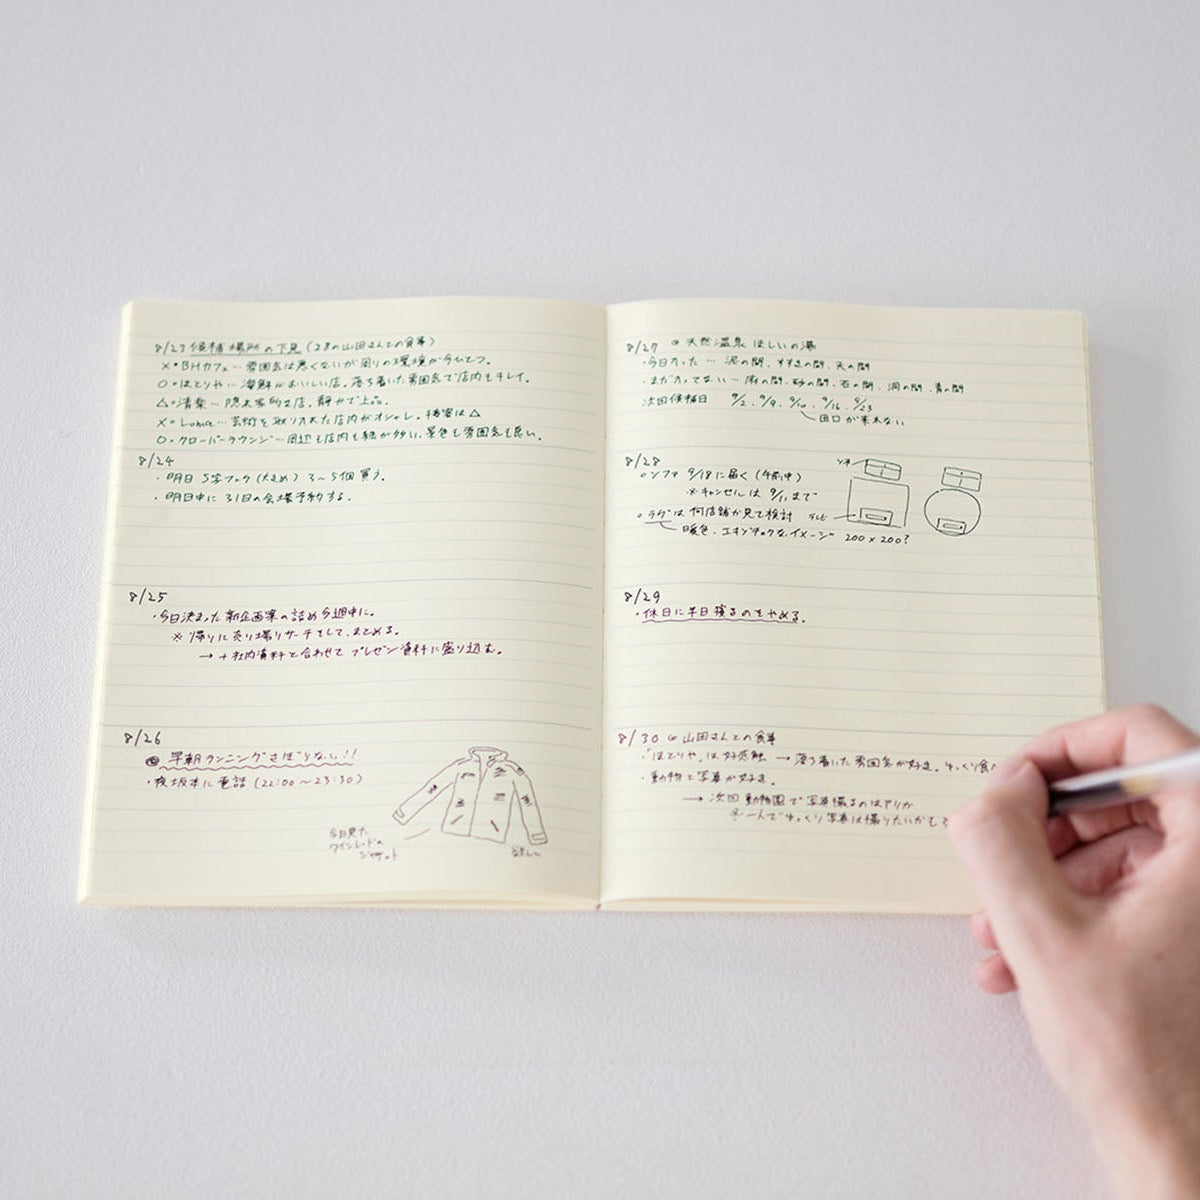 8/23 候補場所の下見 (28の山田さんとの食事)
×・BHカフェ…雰囲気は悪くないが周りの環境が今ひとつ。
○・ほとりや…海鮮がおいしい店。落ち着いた雰囲気で店内もキレイ。
△・清楽…隠れ家的な店。静かで上品。
×・Loma…芸術を取り入れた店内がオシャレ。接客は△
○・クローバーラウンジ…周辺も店内も緑が多い、景色も雰囲気も良い。
8/24
・明日 S字フック(大きめ) 3〜5個買う。
・明日中に31日の会場予約する。
8/25
・今日決まった新企画案の詰め今週中に。
※帰りに売り場リサーチをして、まとめる。
→+社内資料と合わせてプレゼン資料に盛り込む。
8/26
早朝ランニングさぼらない!!
・夜坂本に電話 (22:00〜23:30)
今日見た
ワインレッドの
ジャケット
欲しい
8/27 天然温泉 ほしいの湯
・今日入った … 泥の間、すすきの間、天の間
・まだ入ってない…雨の間、砂の間、石の間、洞の間、青の間
次回候補日 9/2、9/9、9/10、9/16、9/23
田口が来れない
8/28
○ソファ 9/18に届く(午前中)
※キャンセルは 9/11まで
○ラグは何店舗か見て検討
暖色、エキゾチックなイメージ 200×200?
ソファ
テレビ
8/29
・休日に半日寝るのをやめる。
8/30 山田さんとの食事
・「ほとりや」は好感触 → 落ち着いた雰囲気が好き。ゆっくり食
・動物と写真が好き。
→次回 動物園で写真撮るのはアリか
※一人でゆっくり写真は撮りたいかも